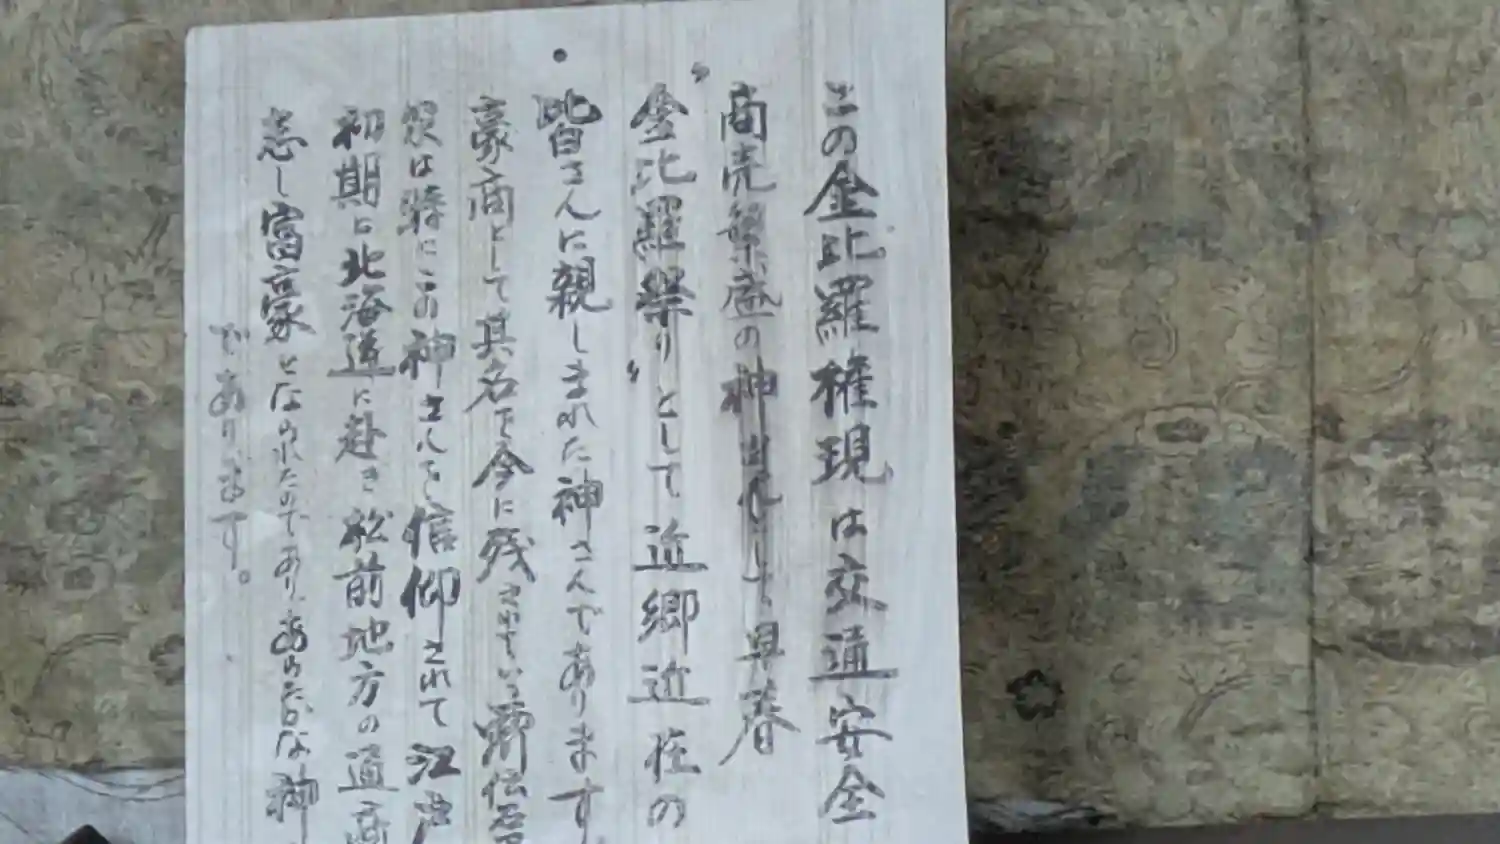 この金比羅権現は交通安全
商売繁盛の神当れし、早春
“金比羅祭り”として近郷近在の
皆さんに親しまれた神さんであります。
豪商として其名を今に残されている 伝右
は特にこの神さんを信仰されて江戸
初期に北海道に赴き松前地方の通商
志し富豪となられたのであり、あらたかな神
であります。